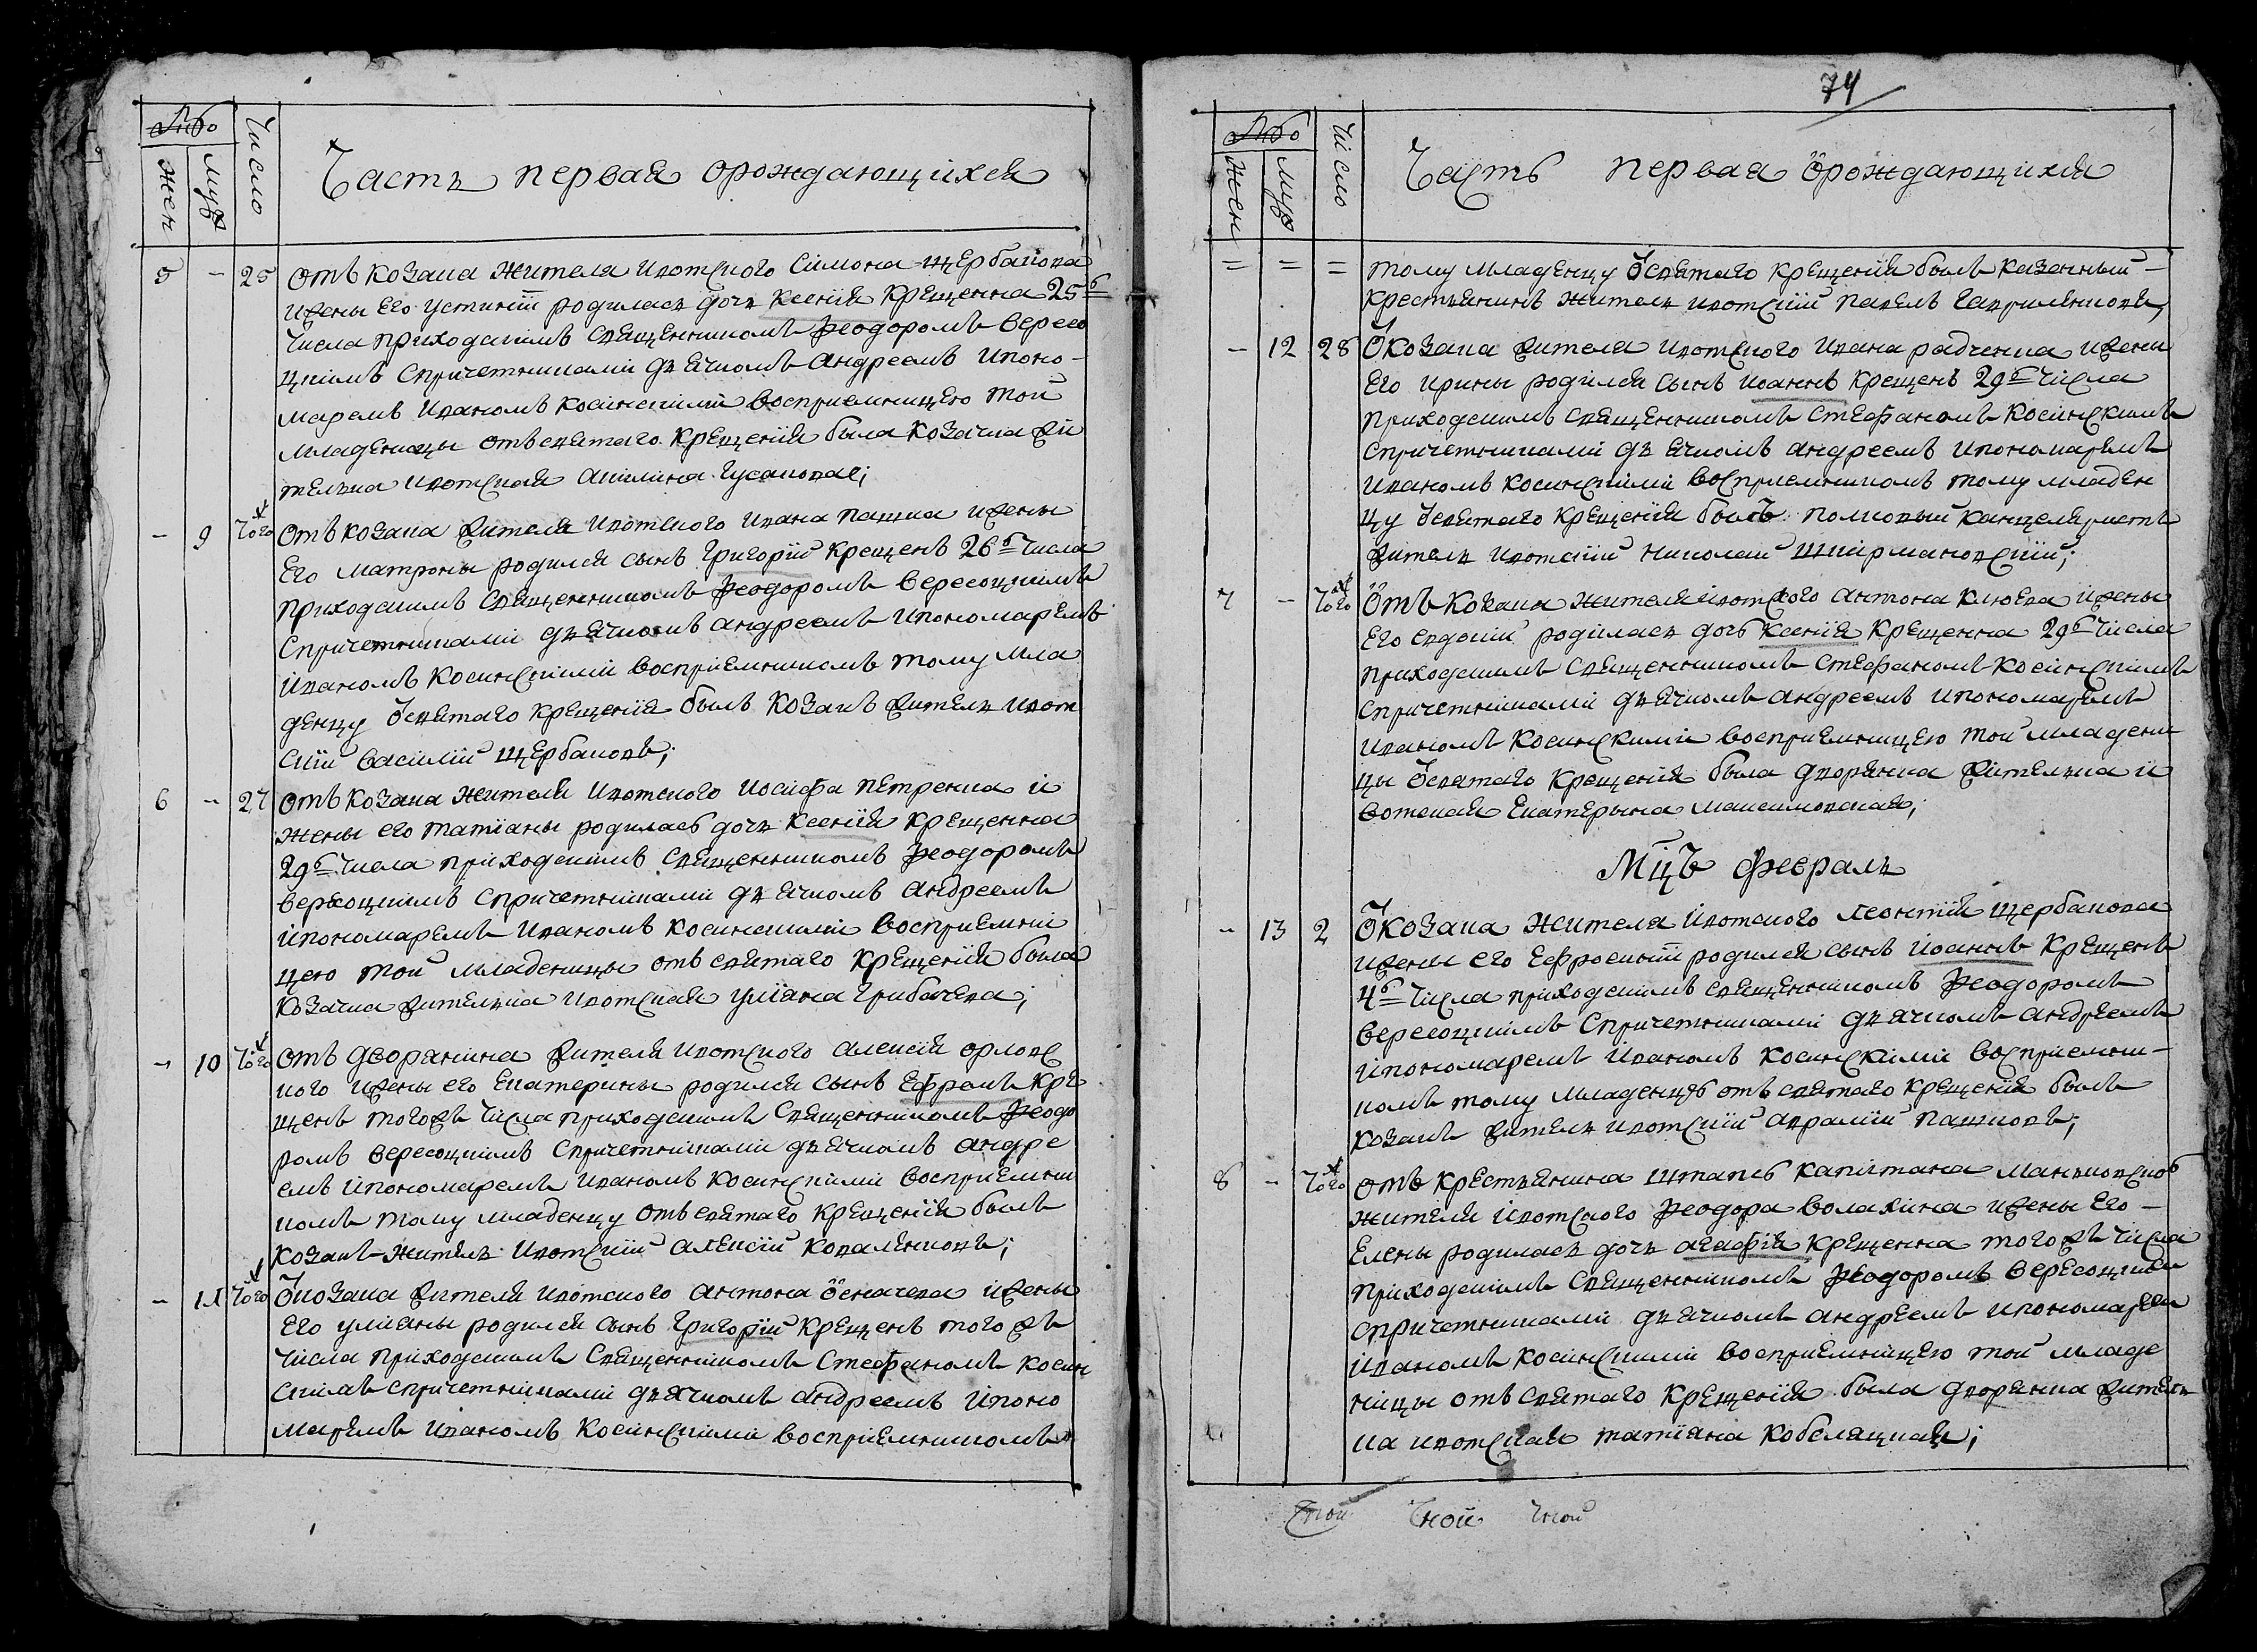 Число
жен
муж
Часть первая орождающихся
5 - 25 Отъ козака жителя ивотского Симона Щербакова
ижены Его Устинїи родилась дочь Ксенїя Крещенна 25г
Числа приходскимъ священникомъ Феодоромъ Вересо
цкимъ Спричетниками дьячкомъ Андреемъ Ипоно-
маремъ Иваномъ Косинскими восприемницею той
Младеницы отъ святаго Крещенїя была Козачка жи
телька ивотская Акилина Гусакова;
- 9 Того Отъ козака жителя ивотского Ивана Пашка ижены
Его Матроны родился сынъ Григорїй Крещенъ 26г Числа
приходскимъ священникомъ Феодоромъ Вересоцкимъ
Спричетниками дьячкомъ Андреемъ Ипономаремъ
Иваномъ Косинскими восприемникомъ тому мла
денцу ѿсвятаго Крещенїя былъ Козакъ житель ивот
скїй Василїй Щербаковъ;
6 - 27 Отъ козака жителя ивотского Иосифа Петренка и
жены его Татїаны родилась дочь Ксенїя крещенна
29г Числа приходскимъ священникомъ Феодоромъ
Вересоцкимъ Спричетниками дьячкомъ Андреемъ
Ипономаремъ Иваномъ Косинскими восприемни
цею той младеницы отъ святаго Крещенїя была
Козачка жителька ивотская Улїана Грибачева;
- 10 Того Отъ дворянина жителя ивотского Алексїя Орловс
кого ижены его Екатерины родился сынъ Ефремъ Кре
щенъ тогожъ Числа приходскимъ священникомъ Феодо
ромъ Вересоцкимъ Спричетниками дьячкомъ Андре
емъ Ипономаремъ Иваномъ Косинскими восприемни
комъ тому младенцу отъ святаго Крещенїя былъ
козакъ житель ивотскїй Алексїй Коваленковъ;
- 11 Того Ѿкозака жителя ивотского Антона ижены
Его Улїаны родился сынъ Григорїй Крещенъ тогожъ
Числа приходскимъ священникомъ Стефаномъ Косин
скимъ спричетниками дьячкомъ Андреемъ Ипоно
маремъ Иваномъ Косинскими восприемникомъ
74
Число
жен
муж
Часть первая ѿрождающихся
= = = тому младенцу ѿсвятаго крещенїя былъ казенный -
крестьянинъ житель ивотскїй Павелъ Гавриленковъ;
- 12 28 Ѿкозака жителя ивотского Ивана Радченка ижены
Его Ирины родился сынъ Иоаннъ Крещенъ 29г Числа
приходскимъ священникомъ Стефаномъ Косинскимъ
спричетниками дьячкомъ Андреемъ Ипономаремъ
Иваномъ Косинскими восприемникомъ тому младен
цу ѿсвятаго Крещенїя былъ полковый канцеляристъ
житель ивотскїй Николай Шкирмановскїй;
7 - Того Отъ козака жителя ивотского Антона Клюева ижены
Его Евдокїи родилась дочь Ксенїя Крещенна 29г Числа
приходскимъ священникомъ Стефаномъ Косинскимъ
спричетниками дьячкомъ Андреемъ Ипономаремъ
Иваномъ Косинскими восприемницею той младени
цы ѿсвятаго Крещенїя была дворянка жителька и
вотская Екатерына Максимовская;
Мцъ Февраль
- 13 2 Ѿкозака жителя ивотского Леонтїя Щербакова
ижены его Ефросинїи родился сынъ Иоаннъ Крещенъ
4г Числа приходскимъ священникомъ Феодоромъ
Вересоцкимъ Спричетниками дьячкомъ Андреемъ
Ипономаремъ Иваномъ Косинскими восприемни-
комъ тому младенцу отъ святаго Крещенїя былъ
Козакъ житель ивотскїй Аврамїй Пашковъ;
8 - Того отъ крестьянина штапсъ капитана
жителя ивотского Феодора Волахина ижены Его -
Елены родилась дочь Агафїя Крещенна тогожъ Числа
приходскимъ священникомъ Феодоромъ Вересоцким
спричетниками дьячкомъ Андреемъ Ипономарем
Иваномъ Косинскими восприемницею той младе
ницы отъ святаго Крещенїя была дворянка житель
ка ивотская Татїана Кобеляцкая;